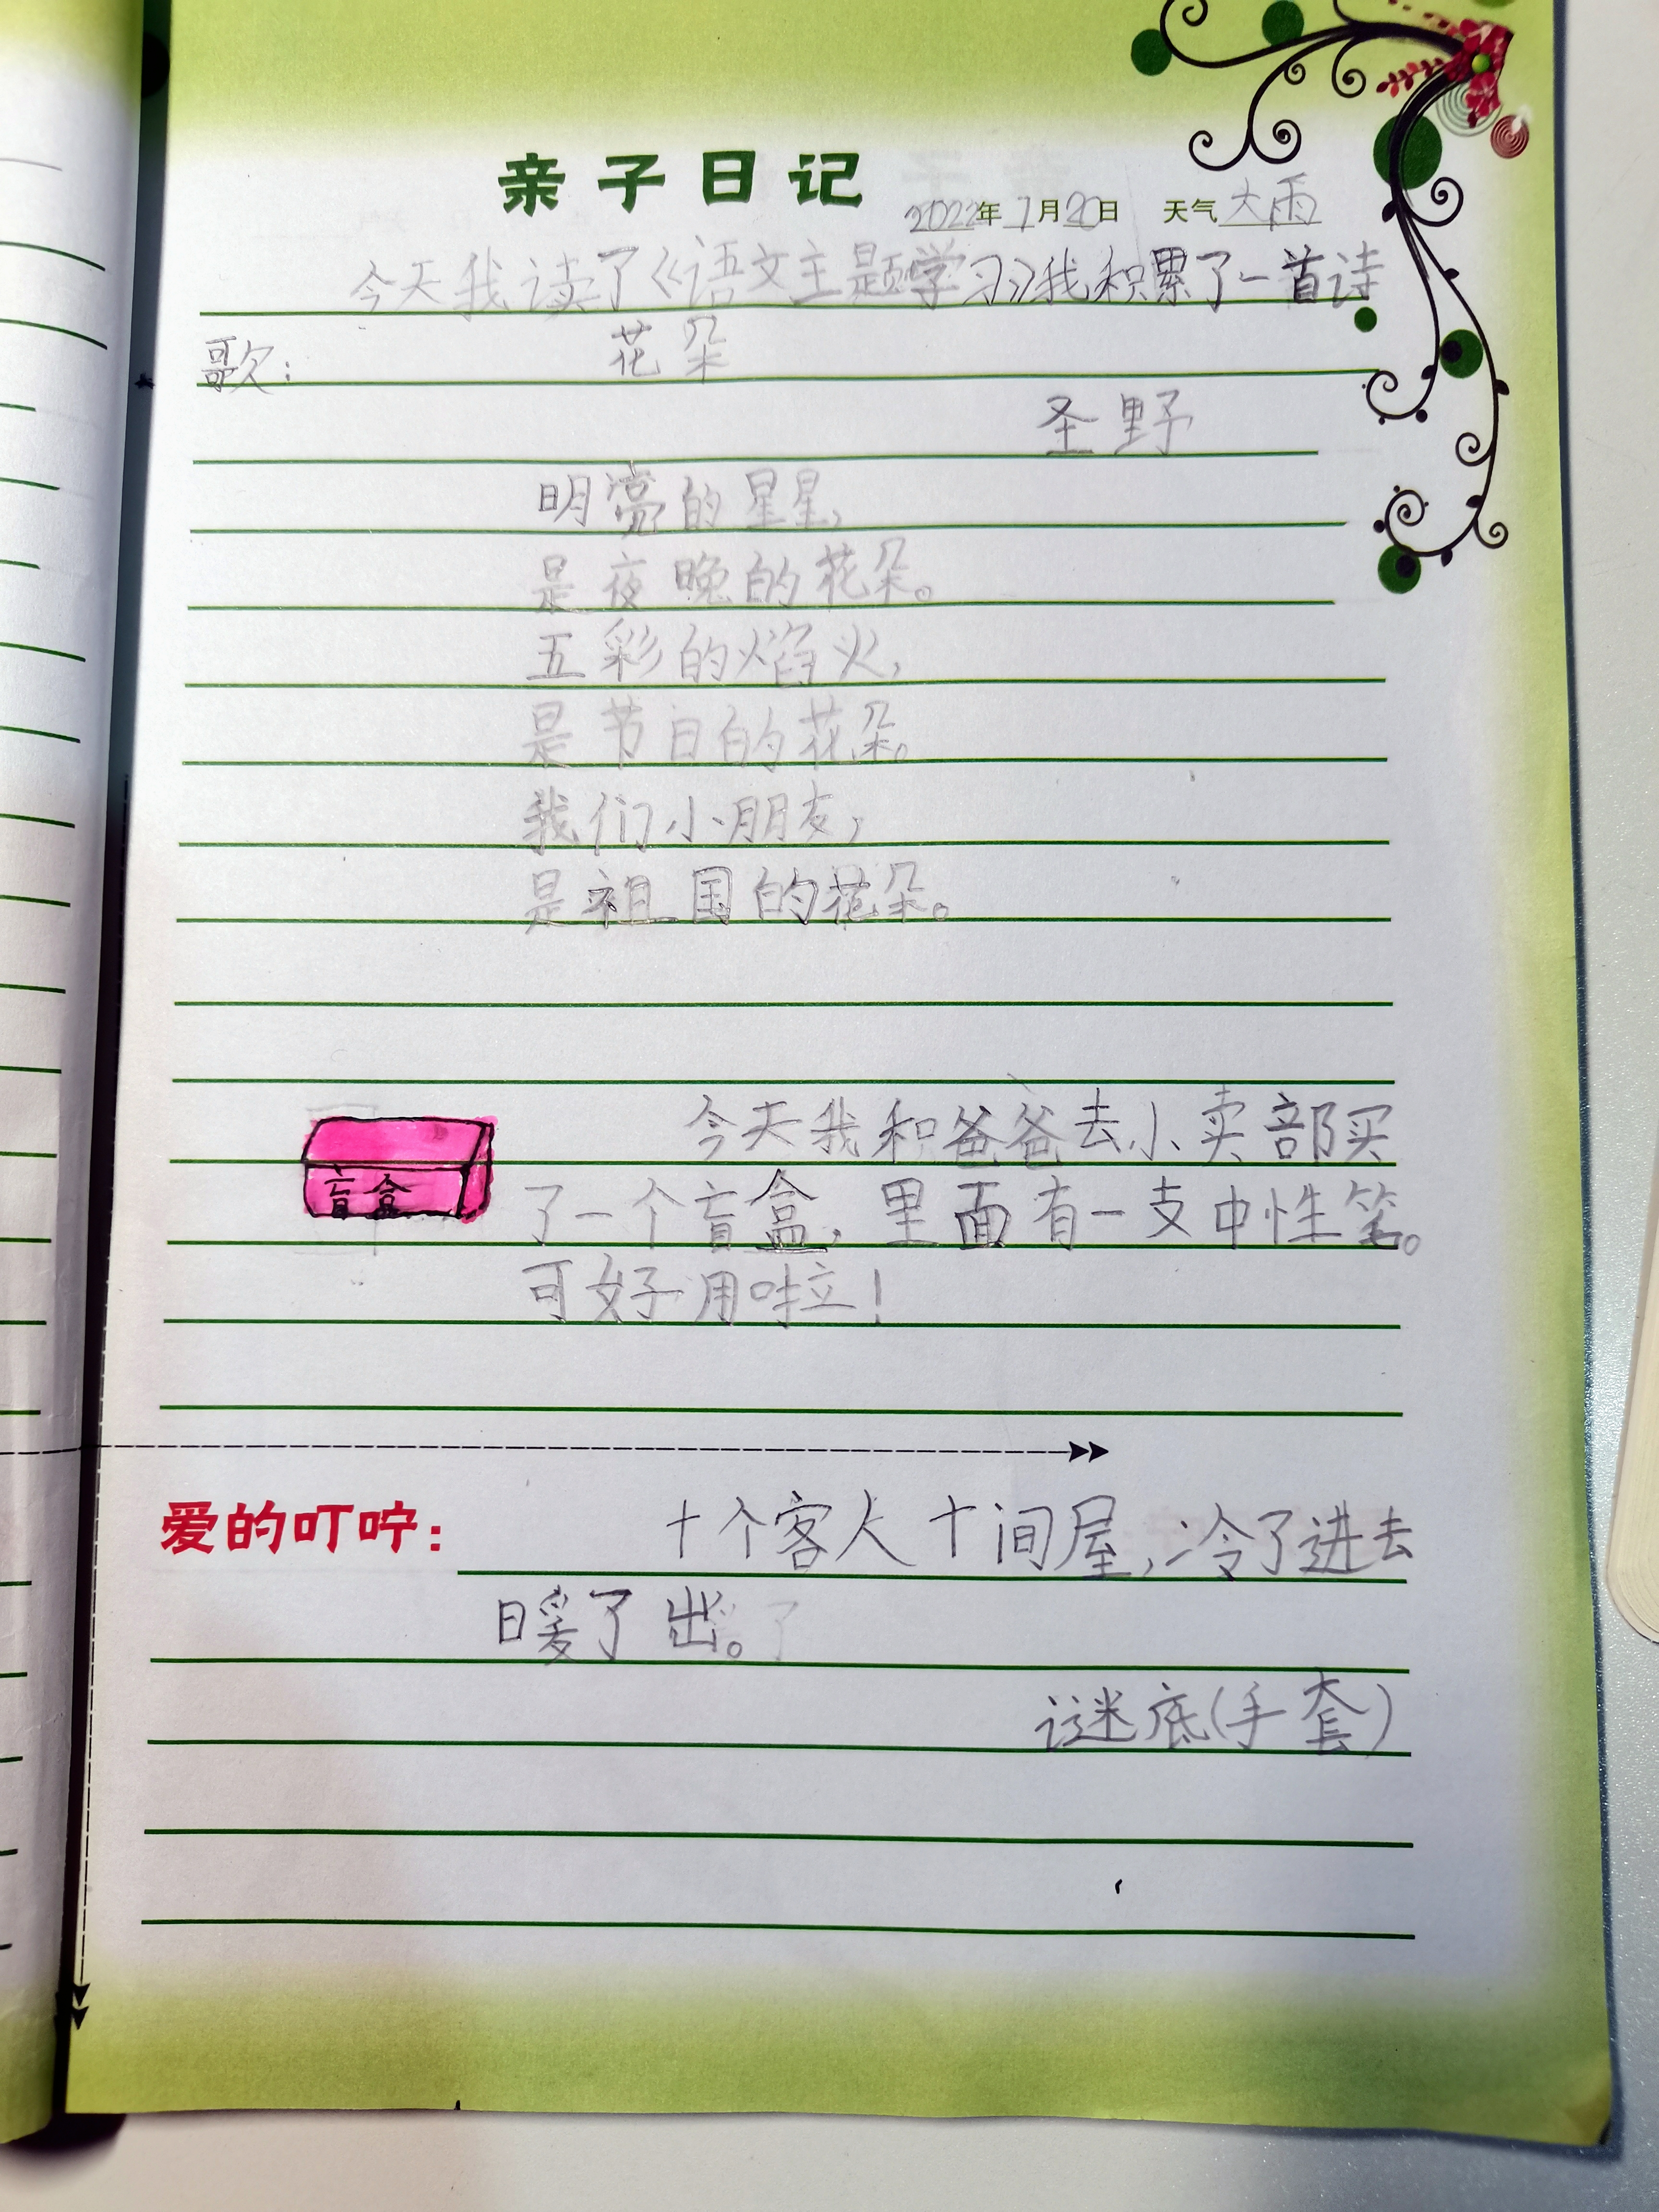 亲子日记
2022年7月20日 天气 大雨
今天我读了《语文主题学习》我积累了一首诗
歌: 花朵
圣野
明亮的星星,
是夜晚的花朵。
五彩的焰火,
是节日的花朵。
我们小朋友,
是祖国的花朵。
今天我和爸爸去小卖部买
盲盒
了一个盲盒,里面有一支中性笔。
可好用啦!
爱的叮咛: 十个客人十间屋,冷了进去
暖了出。
谜底(手套)